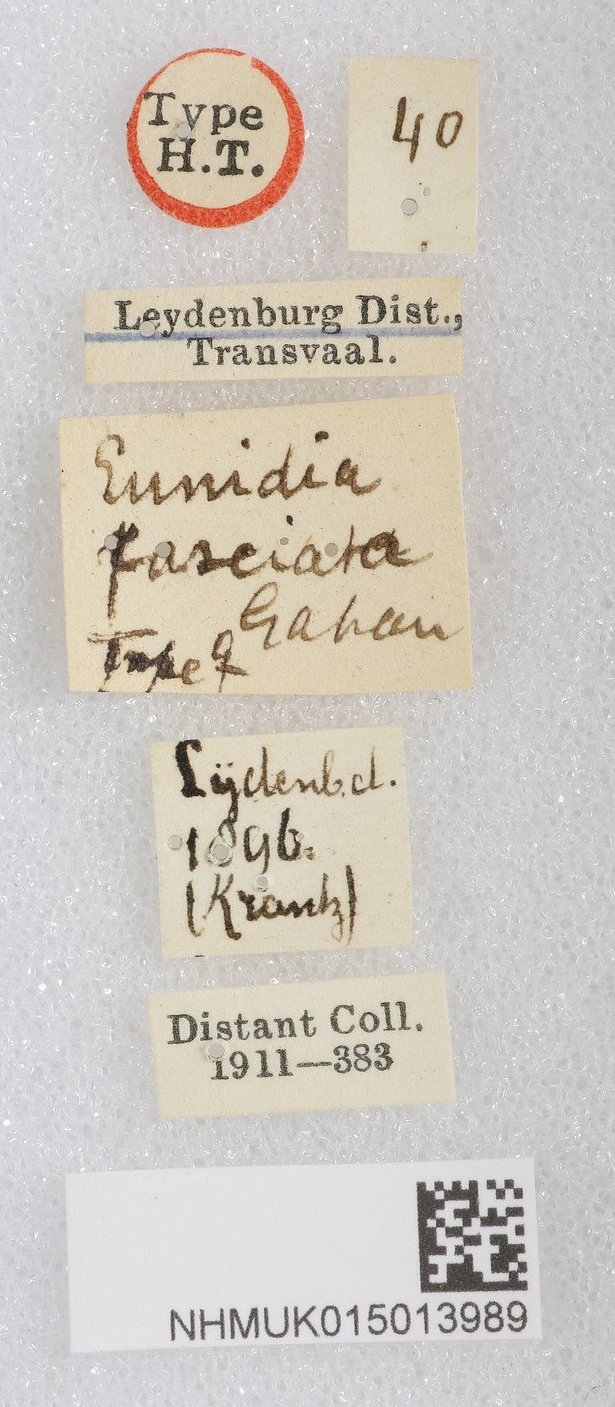 Type
H.T.
40
Leydenburg Dist.,
Transvaal.
Eunidia
fasciata
Gahan
Type ♀
Lÿdenb.d.
1896.
(Krantz)
Distant Coll.
1911—383
NHMUK015013989